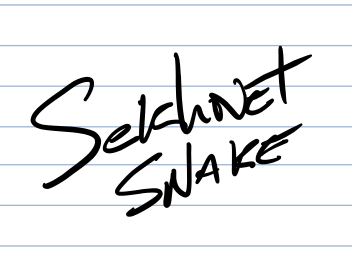 Sekhnet
SNAKE